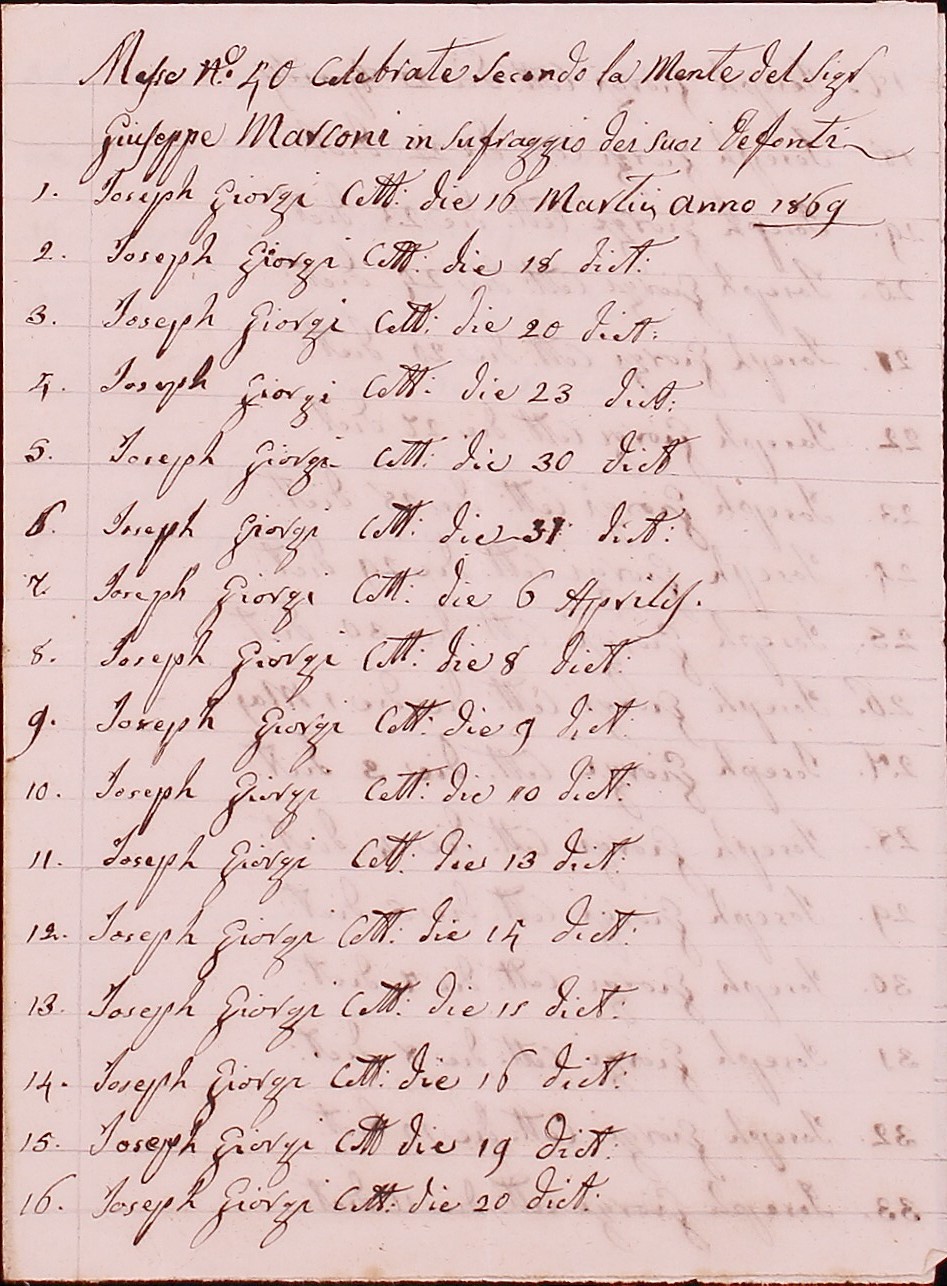 Messe N.º 40 Celebrate Secondo la Mente del Sigr
Giuseppe Marconi in Sufraggio dei suoi Defonti
1. Joseph Giorgi Cett: die 16 Martii, anno 1869
2. Joseph Giorgi Cett: die 18 dict:
3. Joseph Giorgi Cett: die 20 dict:
4. Joseph Giorgi Cett: die 23 dict:
5. Joseph Giorgi Cett: die 30 dict
6. Joseph Giorgi Cett: die 31 dict:
7. Joseph Giorgi Cett: die 6 Aprilis.
8. Joseph Giorgi Cett: die 8 dict:
9. Joseph Giorgi Cett: die 9 dict:
10. Joseph Giorgi Cett: die 10 dict:
11. Joseph Giorgi Cett: die 13 dict:
12. Joseph Giorgi Cett: die 14 dict:
13. Joseph Giorgi Cett: die 15 dict:
14. Joseph Giorgi Cett: die 16 dict:
15. Joseph Giorgi Cett die 19 Dict:
16. Joseph Giorgi Cett: die 20 dict: